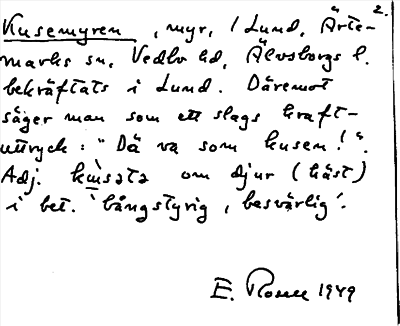 2.
Kusemyren, myr, i Lund, Ärte-
marks sn, Vedbo hd, Älvsborgs l.
bekräftats i Lund. Däremot
säger man som ett slags kraft-
uttryck: "Dä va som kusen!".
Adj. kusətə om djur (häst)
i bet. 'bångstyrig, besvärlig'.
E. Rosell 1949